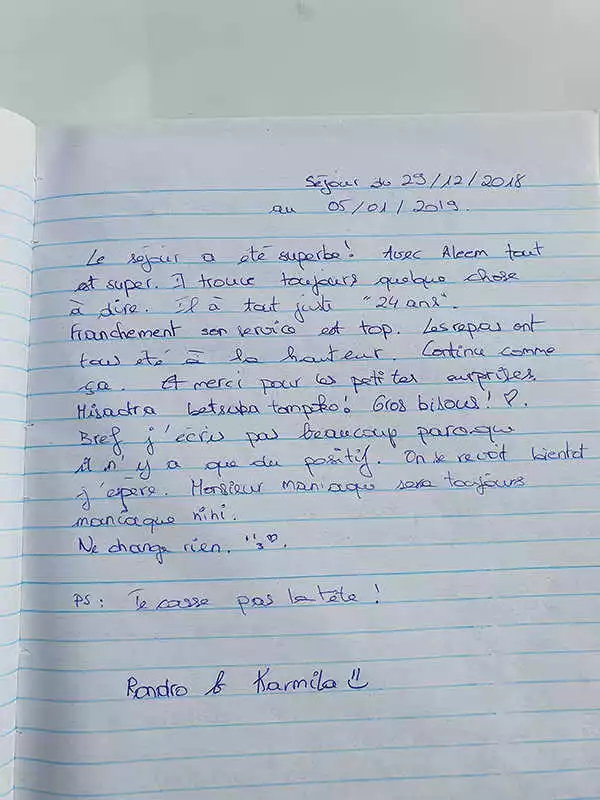 Séjour du 29/12/2018
au 05/01/2019.
Le séjour a été superbe! Avec Aleem tout
est super. Il trouve toujours quelque chose
à dire. Il à tout juste "24 ans".
Franchement son service est top. Les repas ont
tous été à la hauteur. Continu comme
ça. Et merci pour les petites surprises.
Misaotra betsaka tompko! Gros bisous! ♡.
Bref j'écris pas beaucoup parceque
il n'y a que du positif. On se revoit bientot
j'espère. Monsieur maniaque sera toujours
maniaque hihi.
Ne change rien.
PS: Te casse pas la tête!
Randro & Karmila